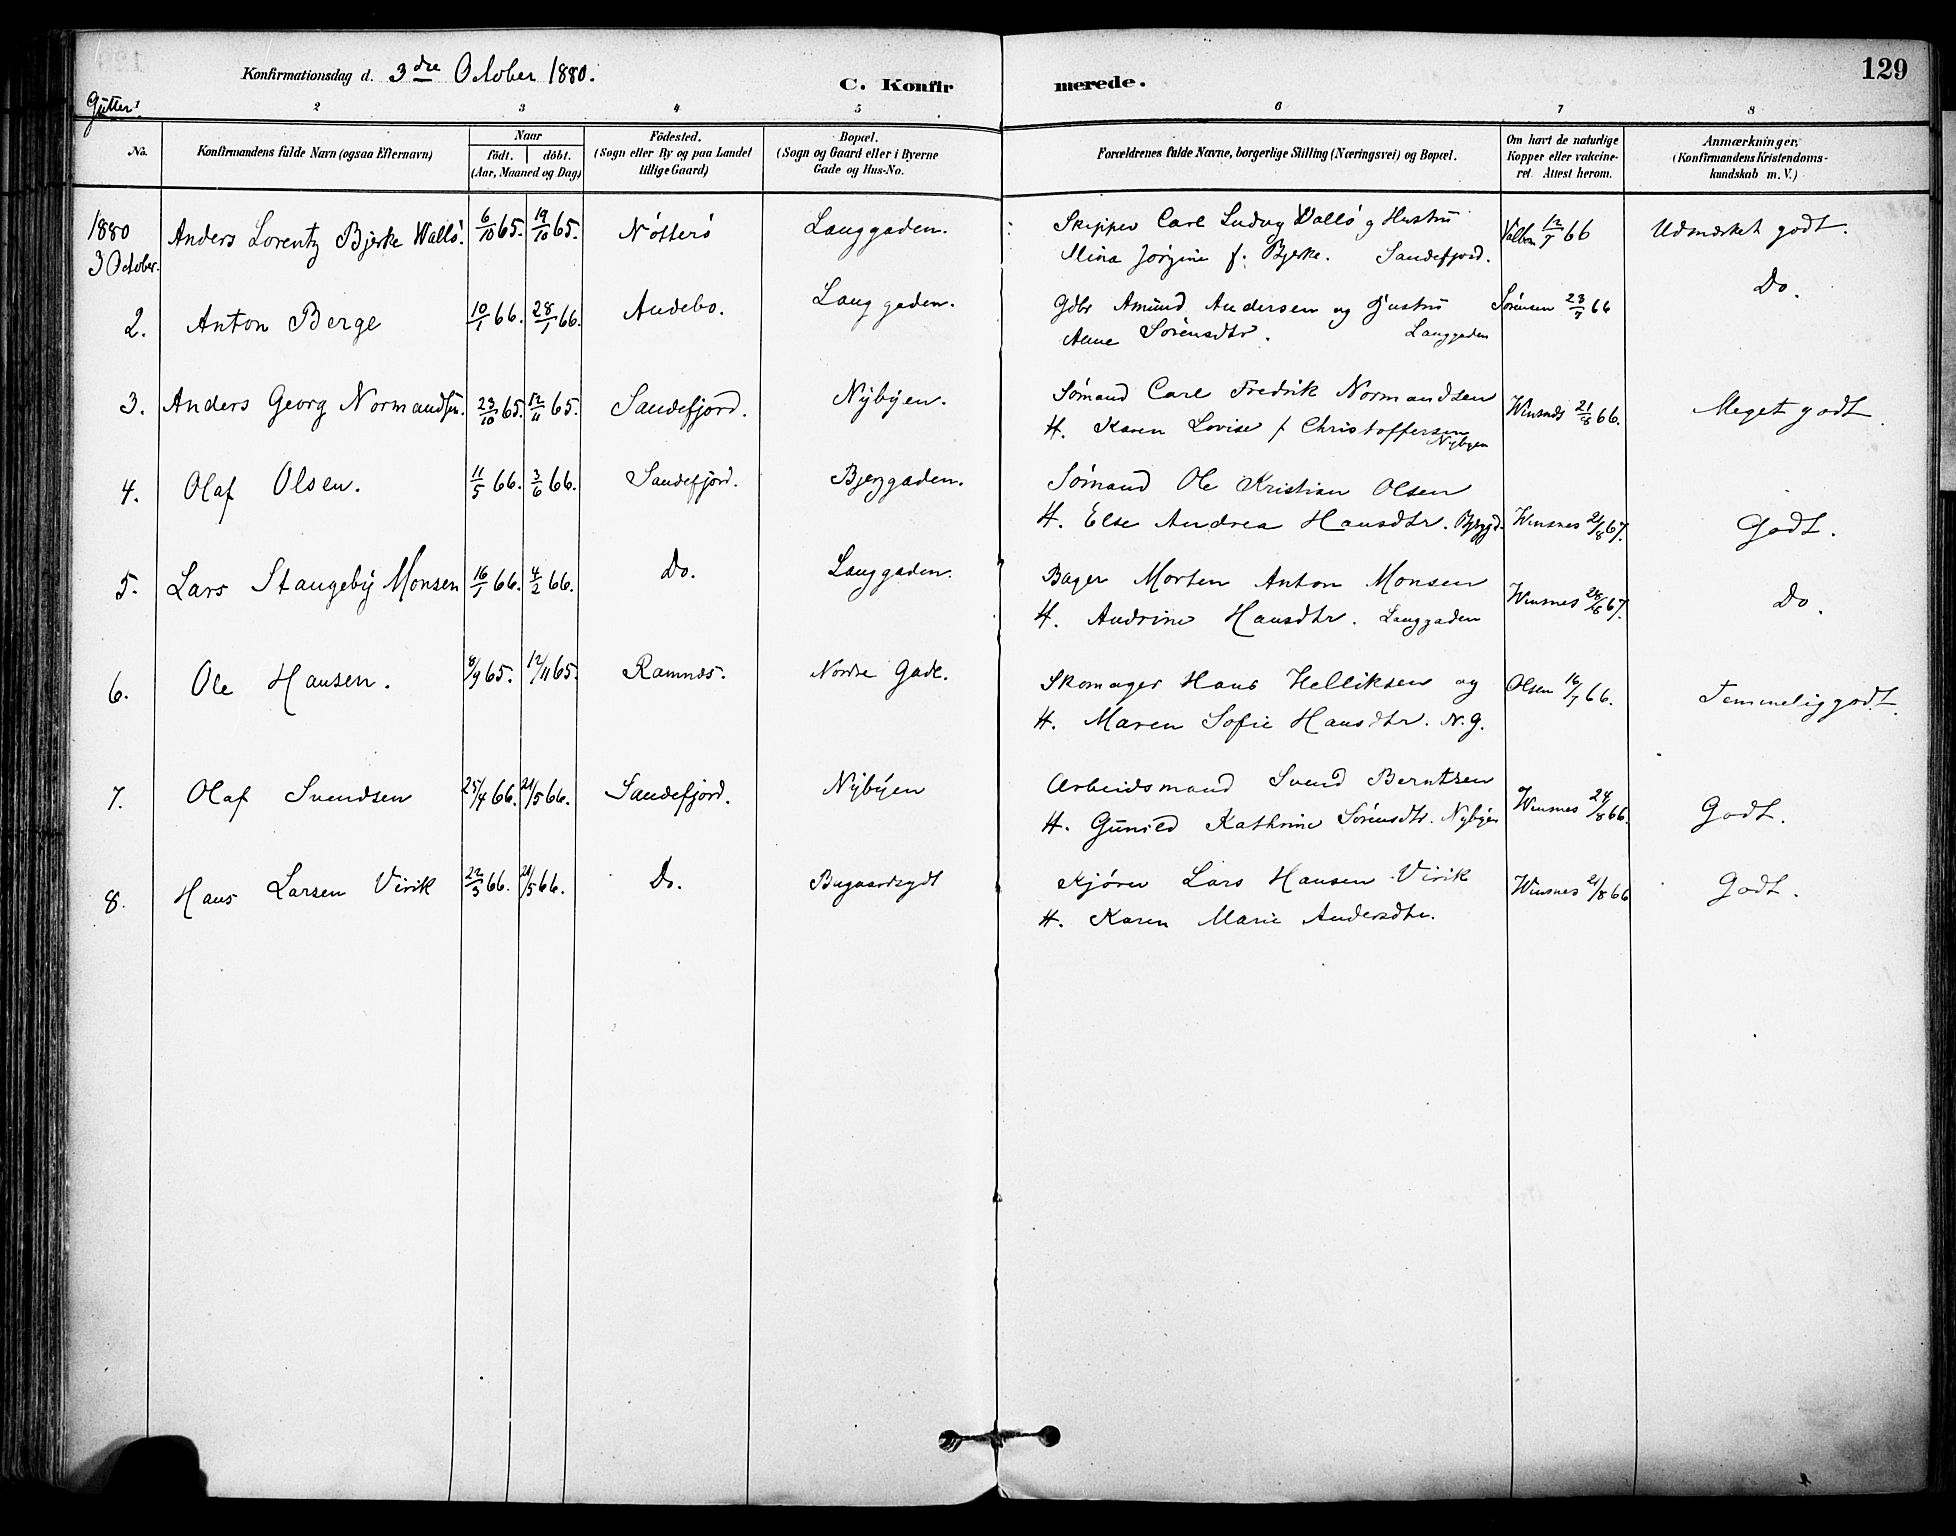 129
Konfirmationsdag d. 3dre October 1880.
C. Konfirmerede.
Gutter
1 2 3 4 5 6 7 8
No.
Konfirmandens fulde Navn (ogsaa Efternavn)
Naar
födt. döbt.
(Aar, Maaned og Dag)
Födested.
(Sogn eller By og paa Landet
tillige Gaard)
Bopæl.
(Sogn og Gaard eller i Byerne
Gade og Hus-No.
Forældrenes fulde Navne, borgerlige Stilling (Næringsvei) og Bopæl.
Om havt de naturlige
Kopper eller vakcine-
ret. Attest herom.
Anmærkninger.
(Konfirmandens Kristendoms-
kundskab m. V.)
1880
3 October.
Anders Lorentz Bjerke Wallö. 6/10 65. 19/10 65. Nötterö Langgaden. Skipper Carl Ludvig Wallö g Hustru
Mina Jørgine f. Bjerke. Sandefjord. 12/7 66 Udmærket godt.
2. Anton Berge 10/1 66. 28/1 66. Andebo. Langgaden. Gdbr Amund Andersen og Hustru
Anne Sörensdtr. Langgaden Sörensen 23/7 66 Do.
3. Anders Georg Normandsen. 23/10 65. 12/11 65. Sandefjord. Nÿbÿen. Sömand Carl Fredrik Normandsen
H. Karen Lovise f Christoffersen Nybyen Winsnes 21/8 66. Meget godt.
4. Olaf Olsen. 11/5 66. 3/6 66. Sandefjord. Bjerggaden. Sömand Ole Kristian Olsen
H. Else Andrea Hansdtr. Bjerggd. Winsnes 21/8 67. Godt.
5. Lars Stangebÿ Monsen 16/1 66. 4/2 66. Do. Langgaden. Bager Morten Anton Monsen
H. Andrine Hansdtr. Langgaden Winsnes 28/6 67. Do.
6. Ole Hansen. 8/9 65. 12/11 65. Ramnæs. Nordre Gade. Skomager Hans Helliksen og
H. Maren Sofie Hansdtr. N.g. Olsen 16/7 66. Temmelig godt.
7. Olaf Svendsen 25/4 66. 21/5 66. Sandefjord. Nÿbÿen Arbeidsmand Svend Berntsen
H. Gunild Kathrine Sörensdtr. Nybyen Winsnes 24/8 66. Godt.
8. Hans Larsen Virik 22/3 66. 21/5 66. Do. Kjörer Lars Hansen Virik
H. Karen Marie Andersdtr. Winsnes 21/8 66 Godt.